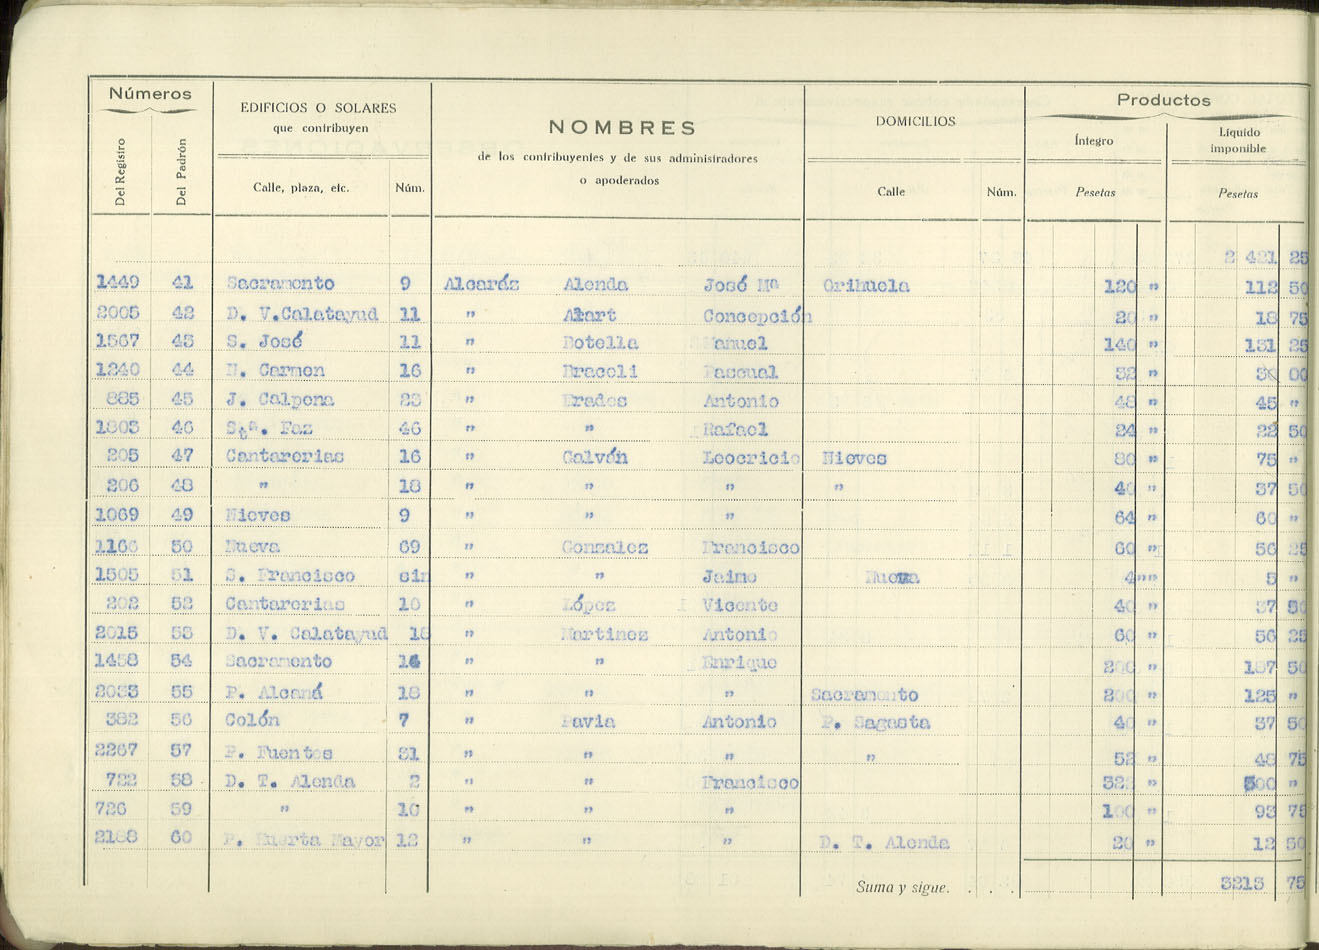 Números
EDIFICIOS O SOLARES
que contribuyen
NOMBRES
de los contribuyentes y de sus administradores
o apoderados
DOMICILIOS
Productos
Íntegro
Líquido
imponible
Del Registro
Del Padrón
Calle, plaza, etc.
Núm.
Calle
Núm.
Pesetas
Pesetas
2 421 25
1449 41 Sacramento 9 Alcaráz Alenda José Mª Orihuela 120 " 112 50
2005 42 D. V.Calatayud 11 " Alart Concepción 20 " 18 75
1567 43 S. José 11 " Botella Manuel 140 " 131 25
1240 44 N. Carmen 16 " Braceli Pascual 32 " 00
885 45 J. Calpena 23 " Brades Antonio 48 " 45 "
1803 46 Stª. Faz 46 " " Rafael 24 " 22 50
205 47 Cantarerias 16 " Galván Leocricio Nieves 80 " 75 "
206 48 " 18 " " " " 40 " 37 50
1069 49 Nieves 9 " " " 64 " 60 "
1166 50 Nueva 69 " Gonzalez Francisco 60 " 56 25
1505 51 S. Francisco sin " " Jaime Nueva 4 "" 5 "
202 52 Cantarerias 10 " López Vicente 40 " 37 50
2015 53 D. V. Calatayud 18 " Martinez Antonio 60 " 56 25
1458 54 Sacramento 14 " " Enrique 200 " 187 50
2033 55 P. Alcaná 18 " " " Sacramento 200 " 125 "
382 56 Colón 7 " Pavia Antonio P. Sagasta 40 " 37 50
2267 57 P. Fuentes 31 " " " " 52 " 48 75
722 58 D. T. Alenda 2 " " Francisco 322 " 300 "
726 59 " 10 " " " 100 " 93 75
2188 60 P. Huerta Mayor 12 " " " D. T. Alenda 20 " 12 50
Suma y sigue. . . . 3213 75